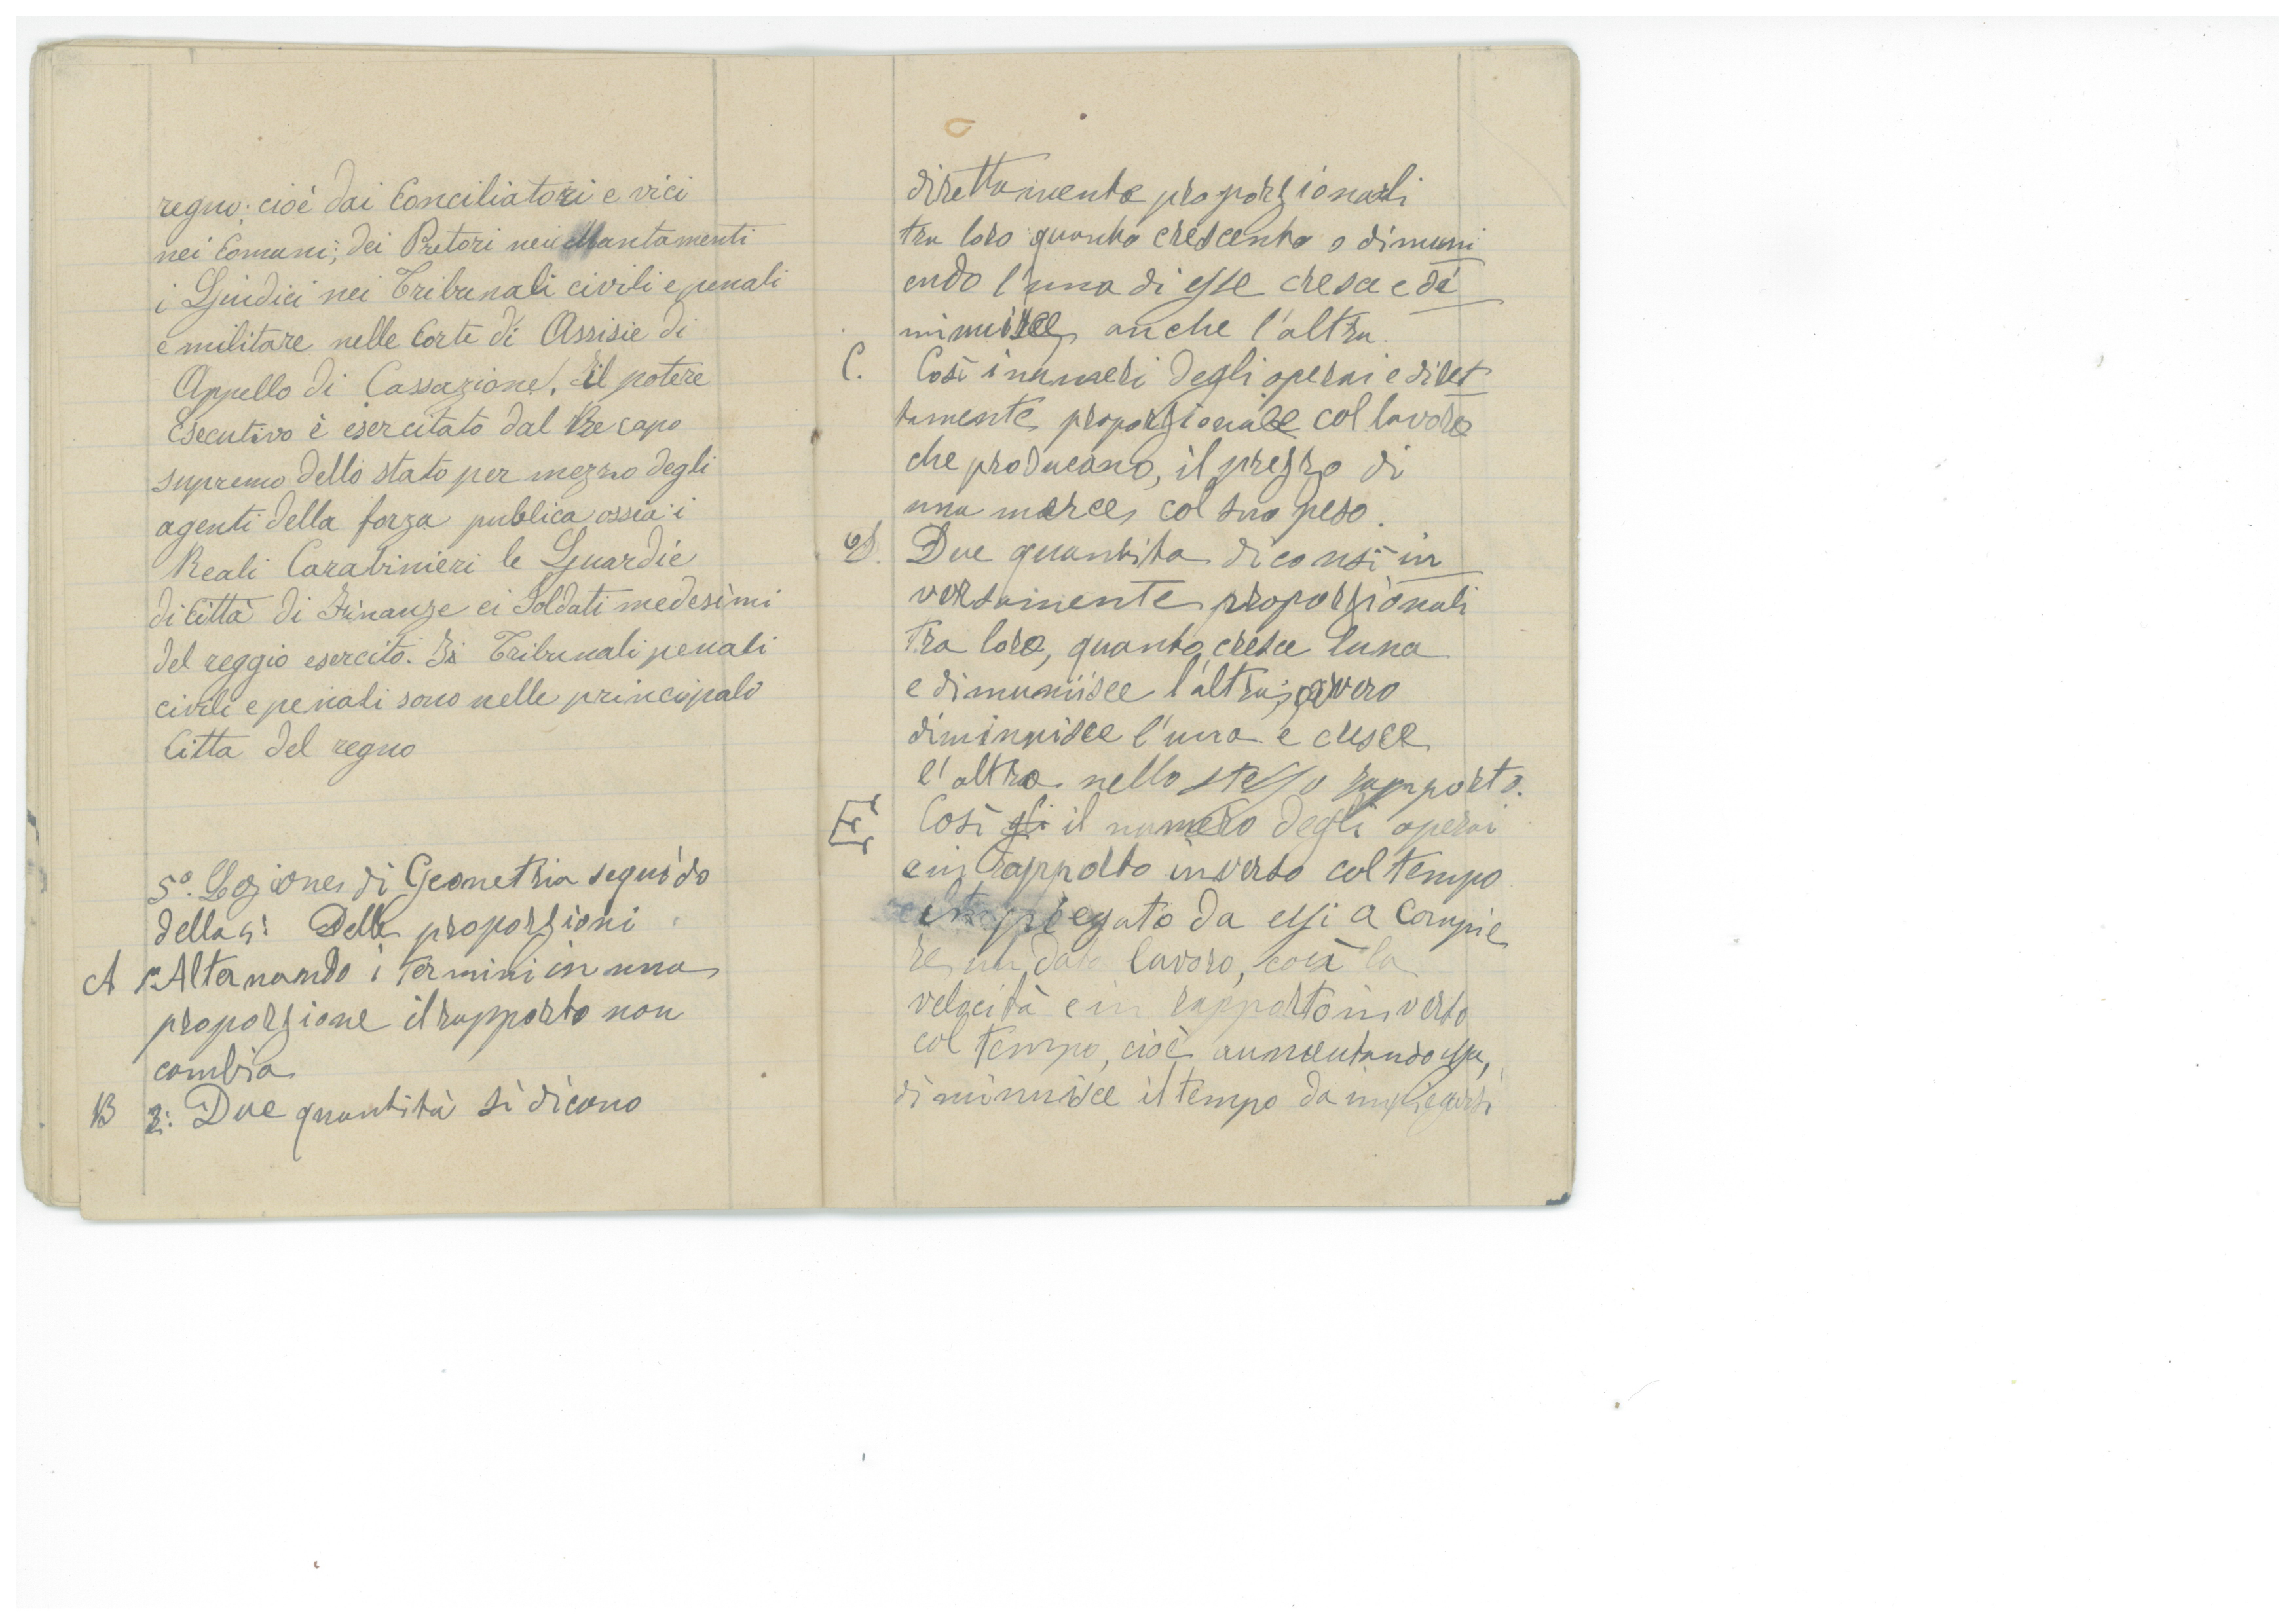 regno; cioè dai Conciliatori e vici
nei Comuni; dei Pretori nei Mantamenti
i Giudici nei Tribunali civili e penali
e militare nelle Corte di Assisie di
Appello di Cassazione. Il potere
Esecutivo è esercitato dal Re capo
supremo dello stato per mezzo degli
agenti della forza publica ossia i
Reali Carabinieri le Guardie
di Città di Finanze ei Soldati medesimi
del reggio esercito. Ii Tribunali penali
civili e penali sono nelle principali
Citta del regno
5a. Lezione di Geometria seguido
della Delle proporzioni
A 1o. Alternando i termini in una
proporzione il rapporto non
cambia
B 2: Due quantità si dicono
direttamente proporzionali
tra loro quanto crescento o dimuni
endo l'una di esse cresce e di
minuisce anche l'altra.
C. Così i numeri degli operai e diret
tamente proporzionale col lavoro
che producano, il prezzo di
una merce col suo peso.
D. Due quantita diconsi in
versamente proporzionali
tra loro, quanto cresce luna
e dimuniisce l'altra; ovvero
diminuisce l'una e cresce
l'altra nello stesso rapporto.
E Così gli il numero degli operai
e in rapporto inverso col tempo
impiegato da essi a compie
re un dato lavoro, così la
velocità e in rapporto inverso
col tempo, cioè aumentando essa,
diminuisce il tempo da impiegarsi